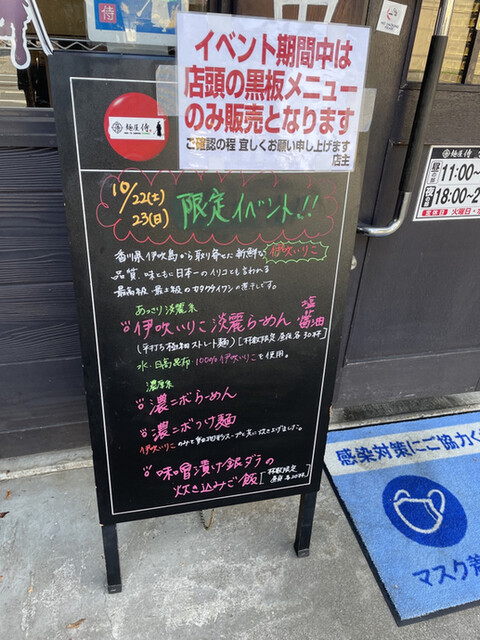 イベント期間中は
店頭の黒板メニュー
のみ販売となります
ご確認の程 宜しくお願い申し上げます
店主
侍
麺屋 侍
10/22(土)
23(日)
限定イベント!!
香川県 伊吹島から取り寄せた新鮮な 伊吹いりこ
品質、味ともに日本一のイリコとも言われる
最高級 最上級のカタクチイワシの煮干しです。
あっさり淡麗系
伊吹いりこ淡麗らーめん 塩 醤油
(平打ち極細ストレート麺) [杯数限定 昼夜各30杯]
水、日高昆布 100%伊吹いりこを使用。
濃厚系
濃ニボらーめん
濃ニボつけ麺
伊吹いりこのみで
味噌漬け銀ダラの
炊き込みご飯
[杯数限定
昼夜各20杯]
11:00~
18:00~2
定休日 火曜日
感染対策にご協力く
マスク着